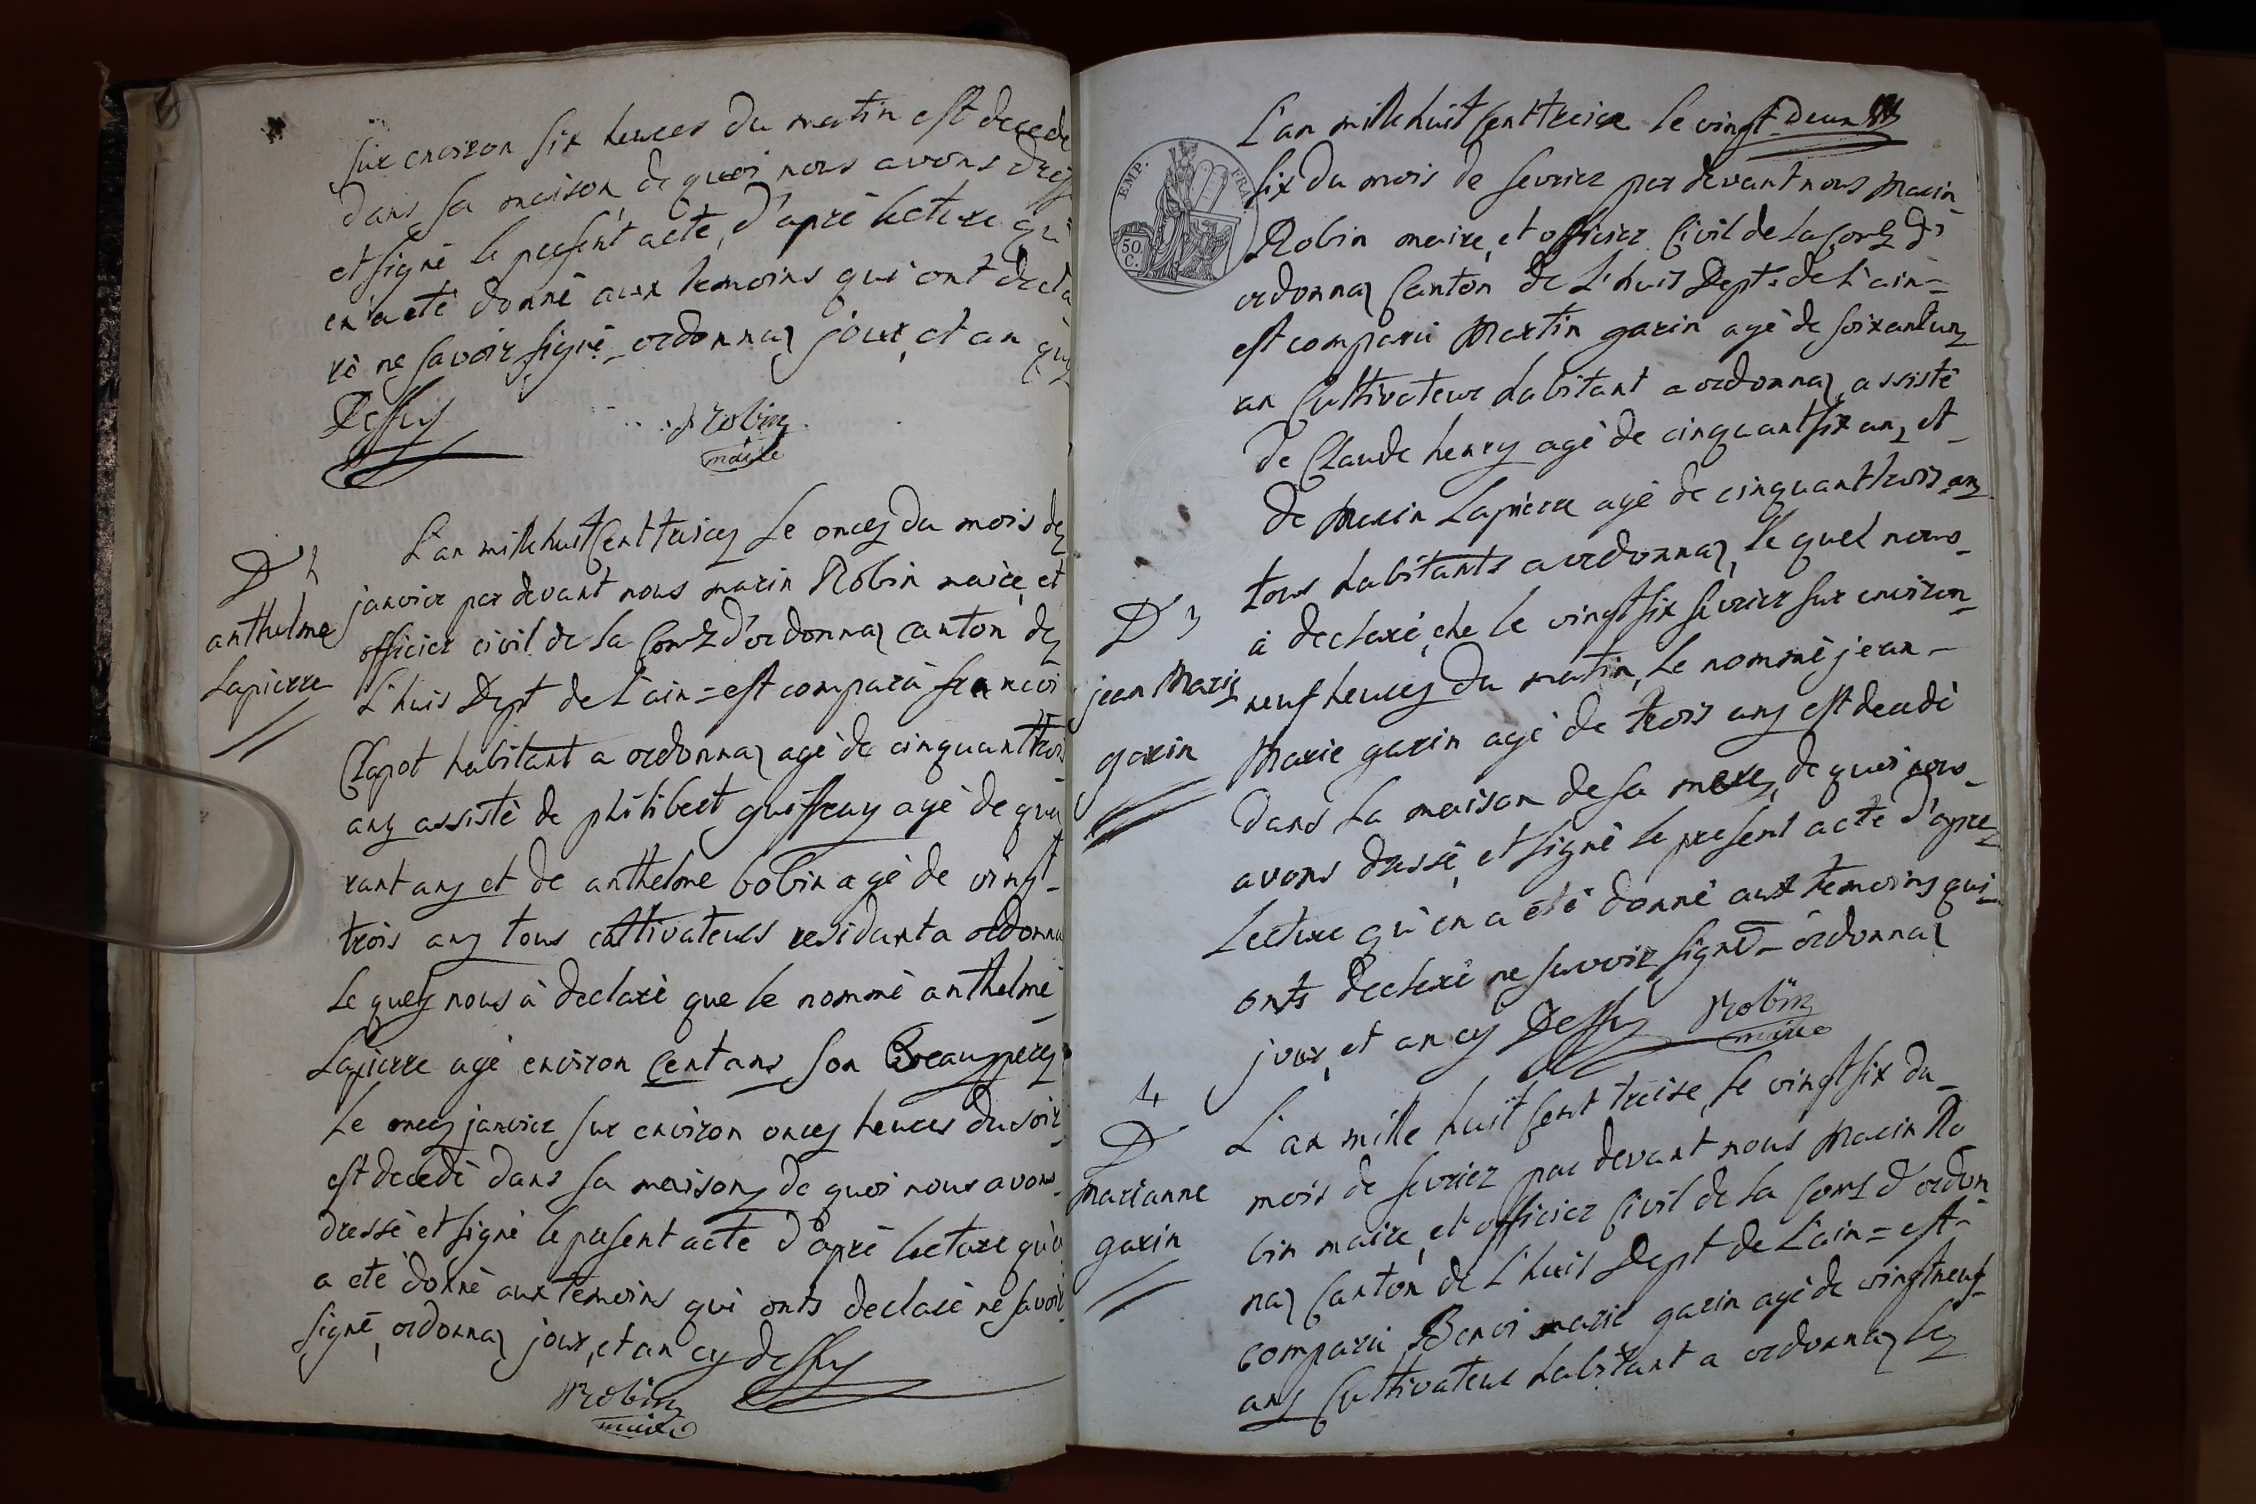 sur environ six heures du matin est decedé
dans sa maison de quoi nous avons dressé
et signé le presént acte, d'apré lecture qui
en a eté donné aux temoins qui ont decla
ré ne savoir signé ordonnaz jour et an que
Dessus
Robin
maire
D 2
anthelme
Lapierre
L'an mille huit Cent treicez Le oncez du mois de
janvier par devant nous marin Robin maire et
officier civil de la Com d'ordonnaz canton de
L'huis Dept de L'ain = est comparu francoi
Clapot habitant a ordonnaz agé de cinquant trois
anz assisté de philibert guiffrey agé de qua
rant anz et de anthelme bobin agé de vingt
trois anz tous cultivateurs residant a ordonna
Le quelz nous à declaré que le nommé anthelme
Lapierre agé environ Cent ans son Beaupere
Le oncez janvier sur environ oncez heures du soir
est decedé dans sa maison de quoi nous avons
dressé et signé le presént acte d'apré lecture qu'en
a eté donné aux temoins qui onts declaré ne savoir
signé, ordonnaz jour, et an que dessus
Robin
maire
EMP. FRA
50 C.
L'an mille huit Cent treize le vingt Deux
six du mois de fevrier par devant nous Marin
Robin maire, et officier Civil de La Com d'
ordonnaz Canton de L'huis Dept de L'ain =
est comparu Martin garin agé de soixant un
an Cultivateur habitant a ordonnaz, assisté
de Claude henry agé de cinquant six anz et
de Marin Lapierre agé de cinquant trois anz
tous habitants a ordonnaz, le quel nous
D 3
jean Marie
garin
à declaré, che le vingt six fevrier sur environ
neuf heurez du matin, Le nommé jean
Marie garin agé de trois anz est decedé
dans La maison de sa mere, de quoi nous
avons dressé, et signé le presént acte d'apre
Lecture qu'en a eté donné aux temoins qui
onts declaré ne savoir signé ordonnaz
jour, et an que Dessus Robin
maire
4
D
Marianne
garin
L'an mille huit Cent treize, le vingt six du
mois de fevrier par devant nous Marin Ro
bin maire, et officier Civil de la Com d'ordon
naz Canton de L'huis Dept de L'ain = est
comparu Benoi Marie garin agé de vingt neuf
anz Cultivateur habitant a ordonnaz Le